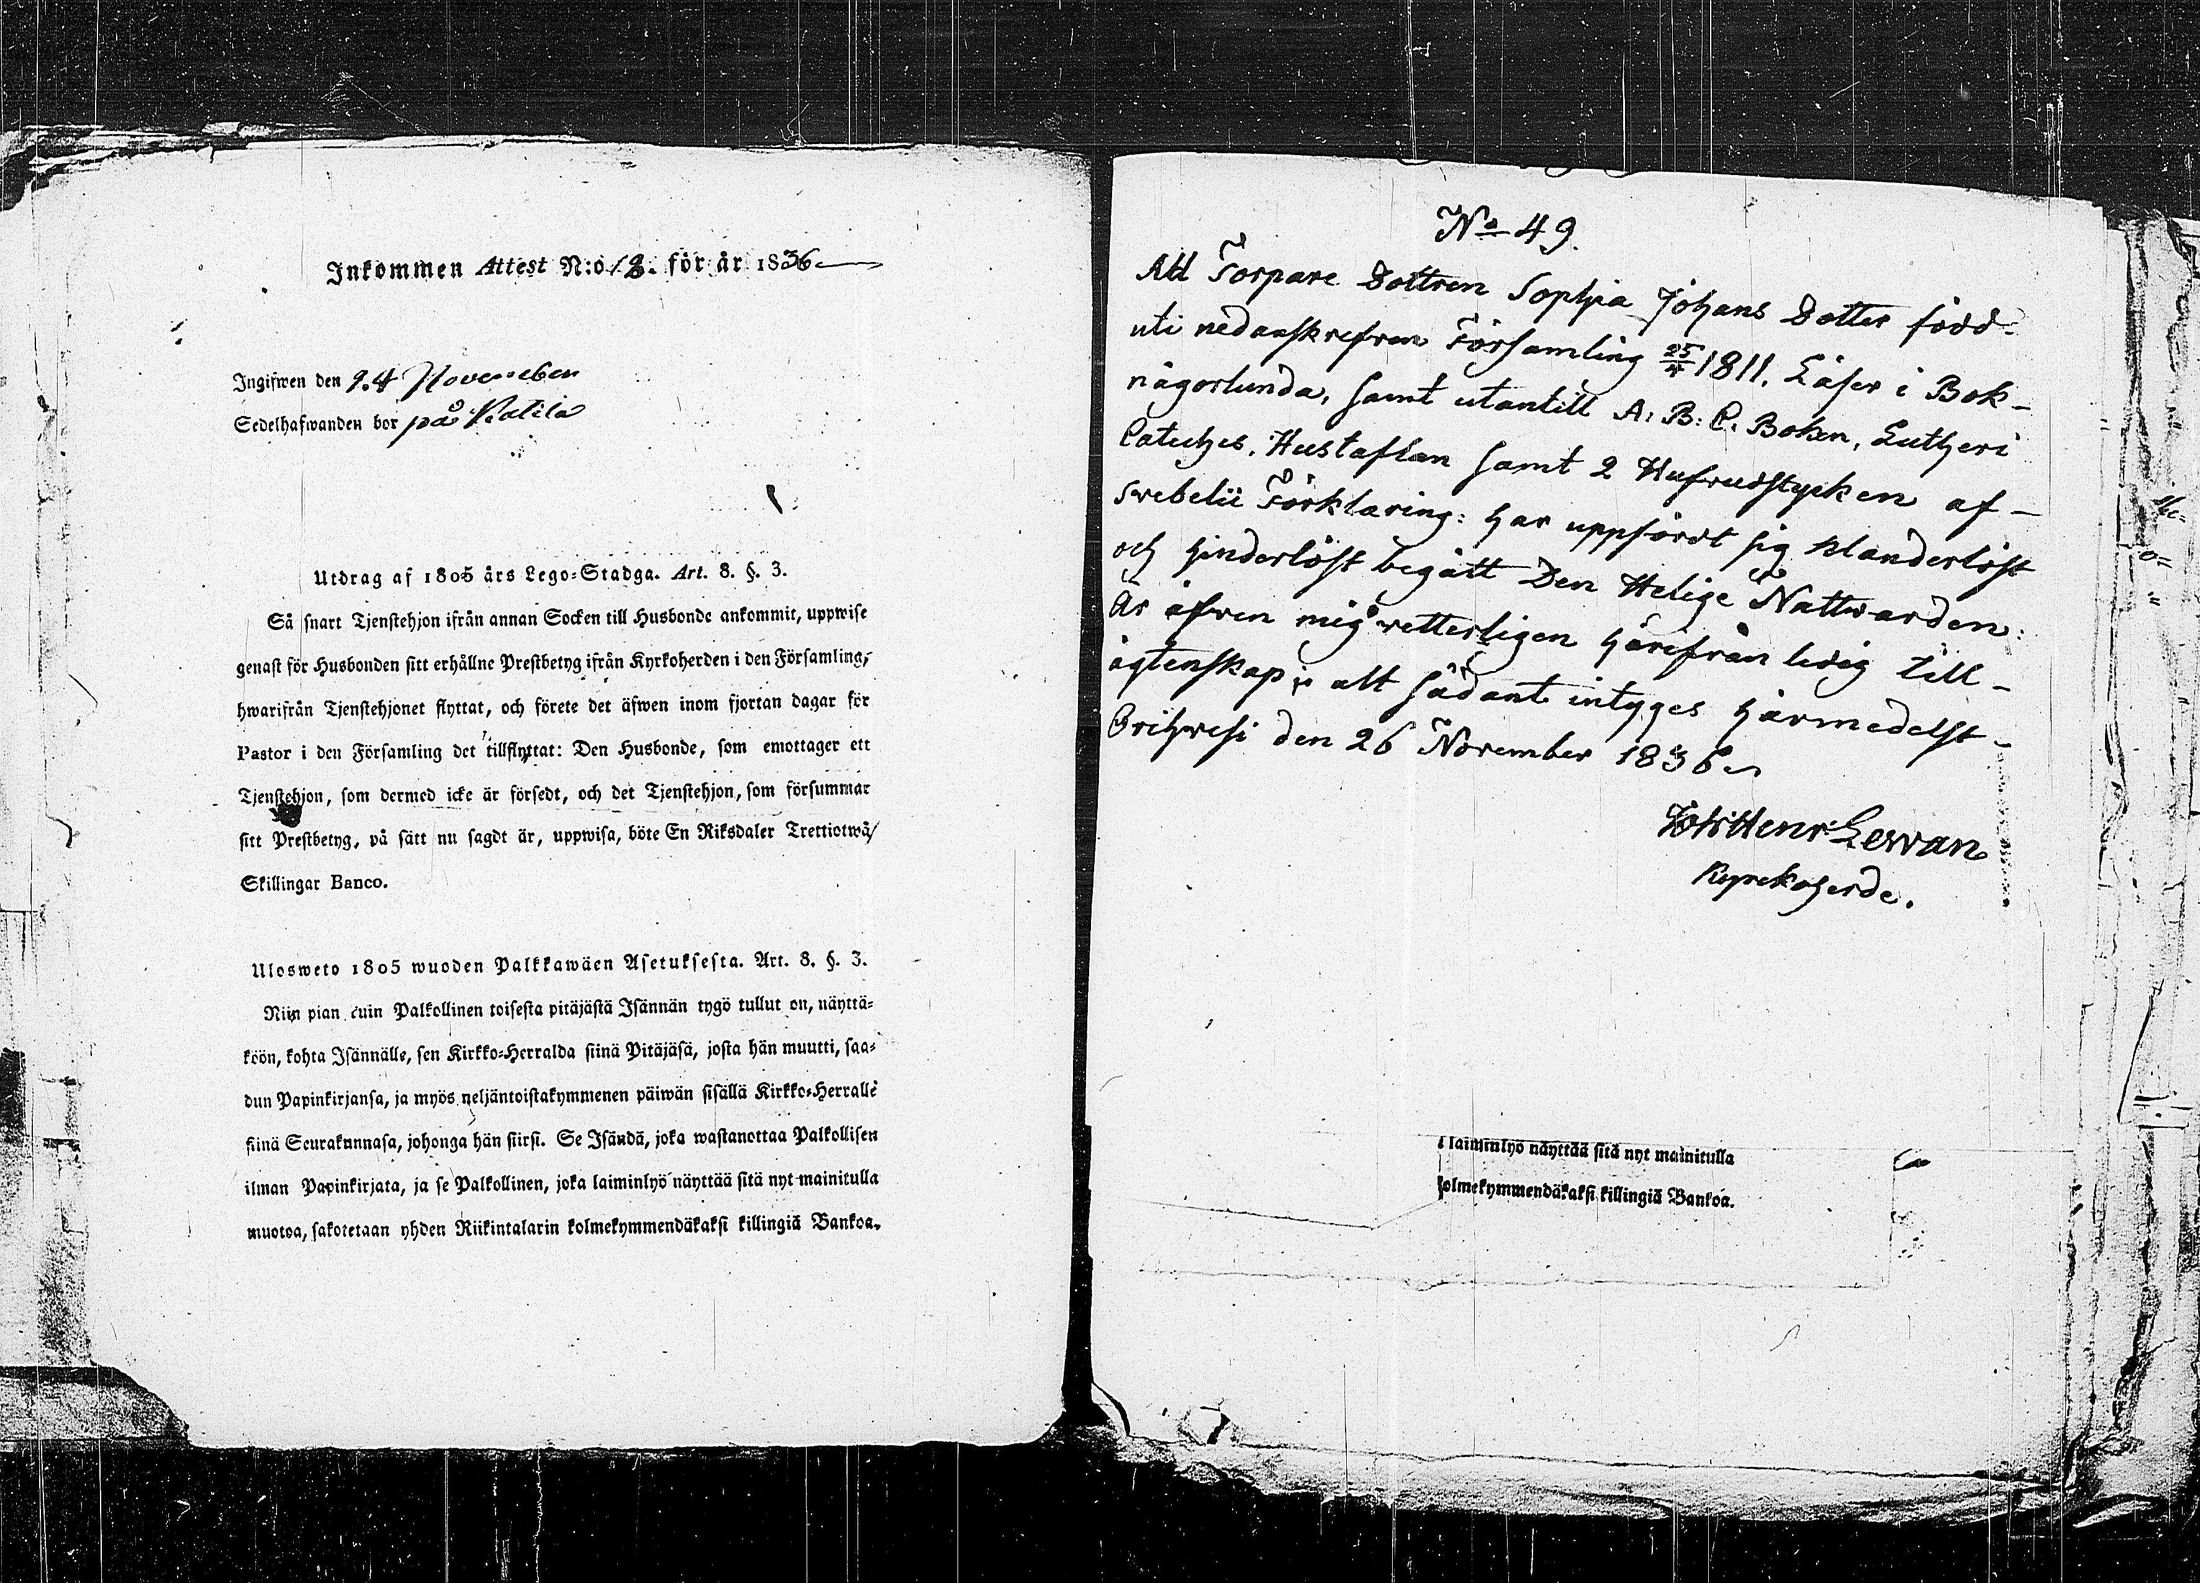 Inkommen Attest N:o 12. för år 1836
Ingifwen den 24 November
Sedelhafwanden bor på Katila
Utdrag af 1805 års Lego=Stadga. Art. 8. §. 3.
Så snart Tjenstehjon ifrån annan Socken till Husbonde ankommit, uppwise
genast för Husbonden sitt erhållne Prestbetyg ifrån Kyrkoherden i den Församling,
hwarifrån Tjenstehjonet flyttat, och förete det äfwen inom fjortan dagar för
Pastor i den Församling det tillflyttat: Den Husbonde, som emottager ett
Tjenstehjon, som dermed icke är försedt, och det Tjenstehjon, som försummar
sitt Prestbetyg, på sätt nu sagdt är, uppwisa, böte En Riksdaler Trettiotwå
Skillingar Banco.
Ulosweto 1805 wuoden Palkkawäen Asetuksesta. Art. 8. §. 3.
Niin pian cuin Palkollinen toisesta pitäjästä Isännän tygö tullut on, näyttä=
köön, kohta Isännälle, sen Kirkko=Herralda siinä Pitäjäsä, josta hän muutti, saa=
dun Papinkirjansa, ja myös neljäntoistakymmenen päiwän sisällä Kirkko=Herralle
siinä Seurakunnasa, johonga hän siirsi. Se Isändä, joka wastanottaa Palkollisen
ilman Papinkirjata, ja se Palkollinen, joka laiminlyö näyttää sitä nyt mainitulla
muotoa, sakotetaan yhden Riikintalarin kolmekymmendäkaksi killingiä Bankoa.
No 49.
Att Torpare Dottren Sophia Johans Dotter född
uti nedanskrefven Församling 25/4 1811. Läser i Bok
någorlunda, samt utantill A: B: C. Boken, Lutheri
Catechs. Hustaflan samt 2 Hufvudstycken af
Svebelii Förklaring: har uppfördt sig klanderlöst
och hinderlöst begått Den Helige Nattvarden:
Är äfven mig vetterligen härifrån ledig till
ägtenskap; alt sådant intyges härmedelst
Orihvesi den 26 November 1836
Joh: Henr: Levvan
Kyrckoherde.
laiminlyö näyttää sitä nyt mainitulla
kolmekymmendäkaksi killingiä Bankoa.